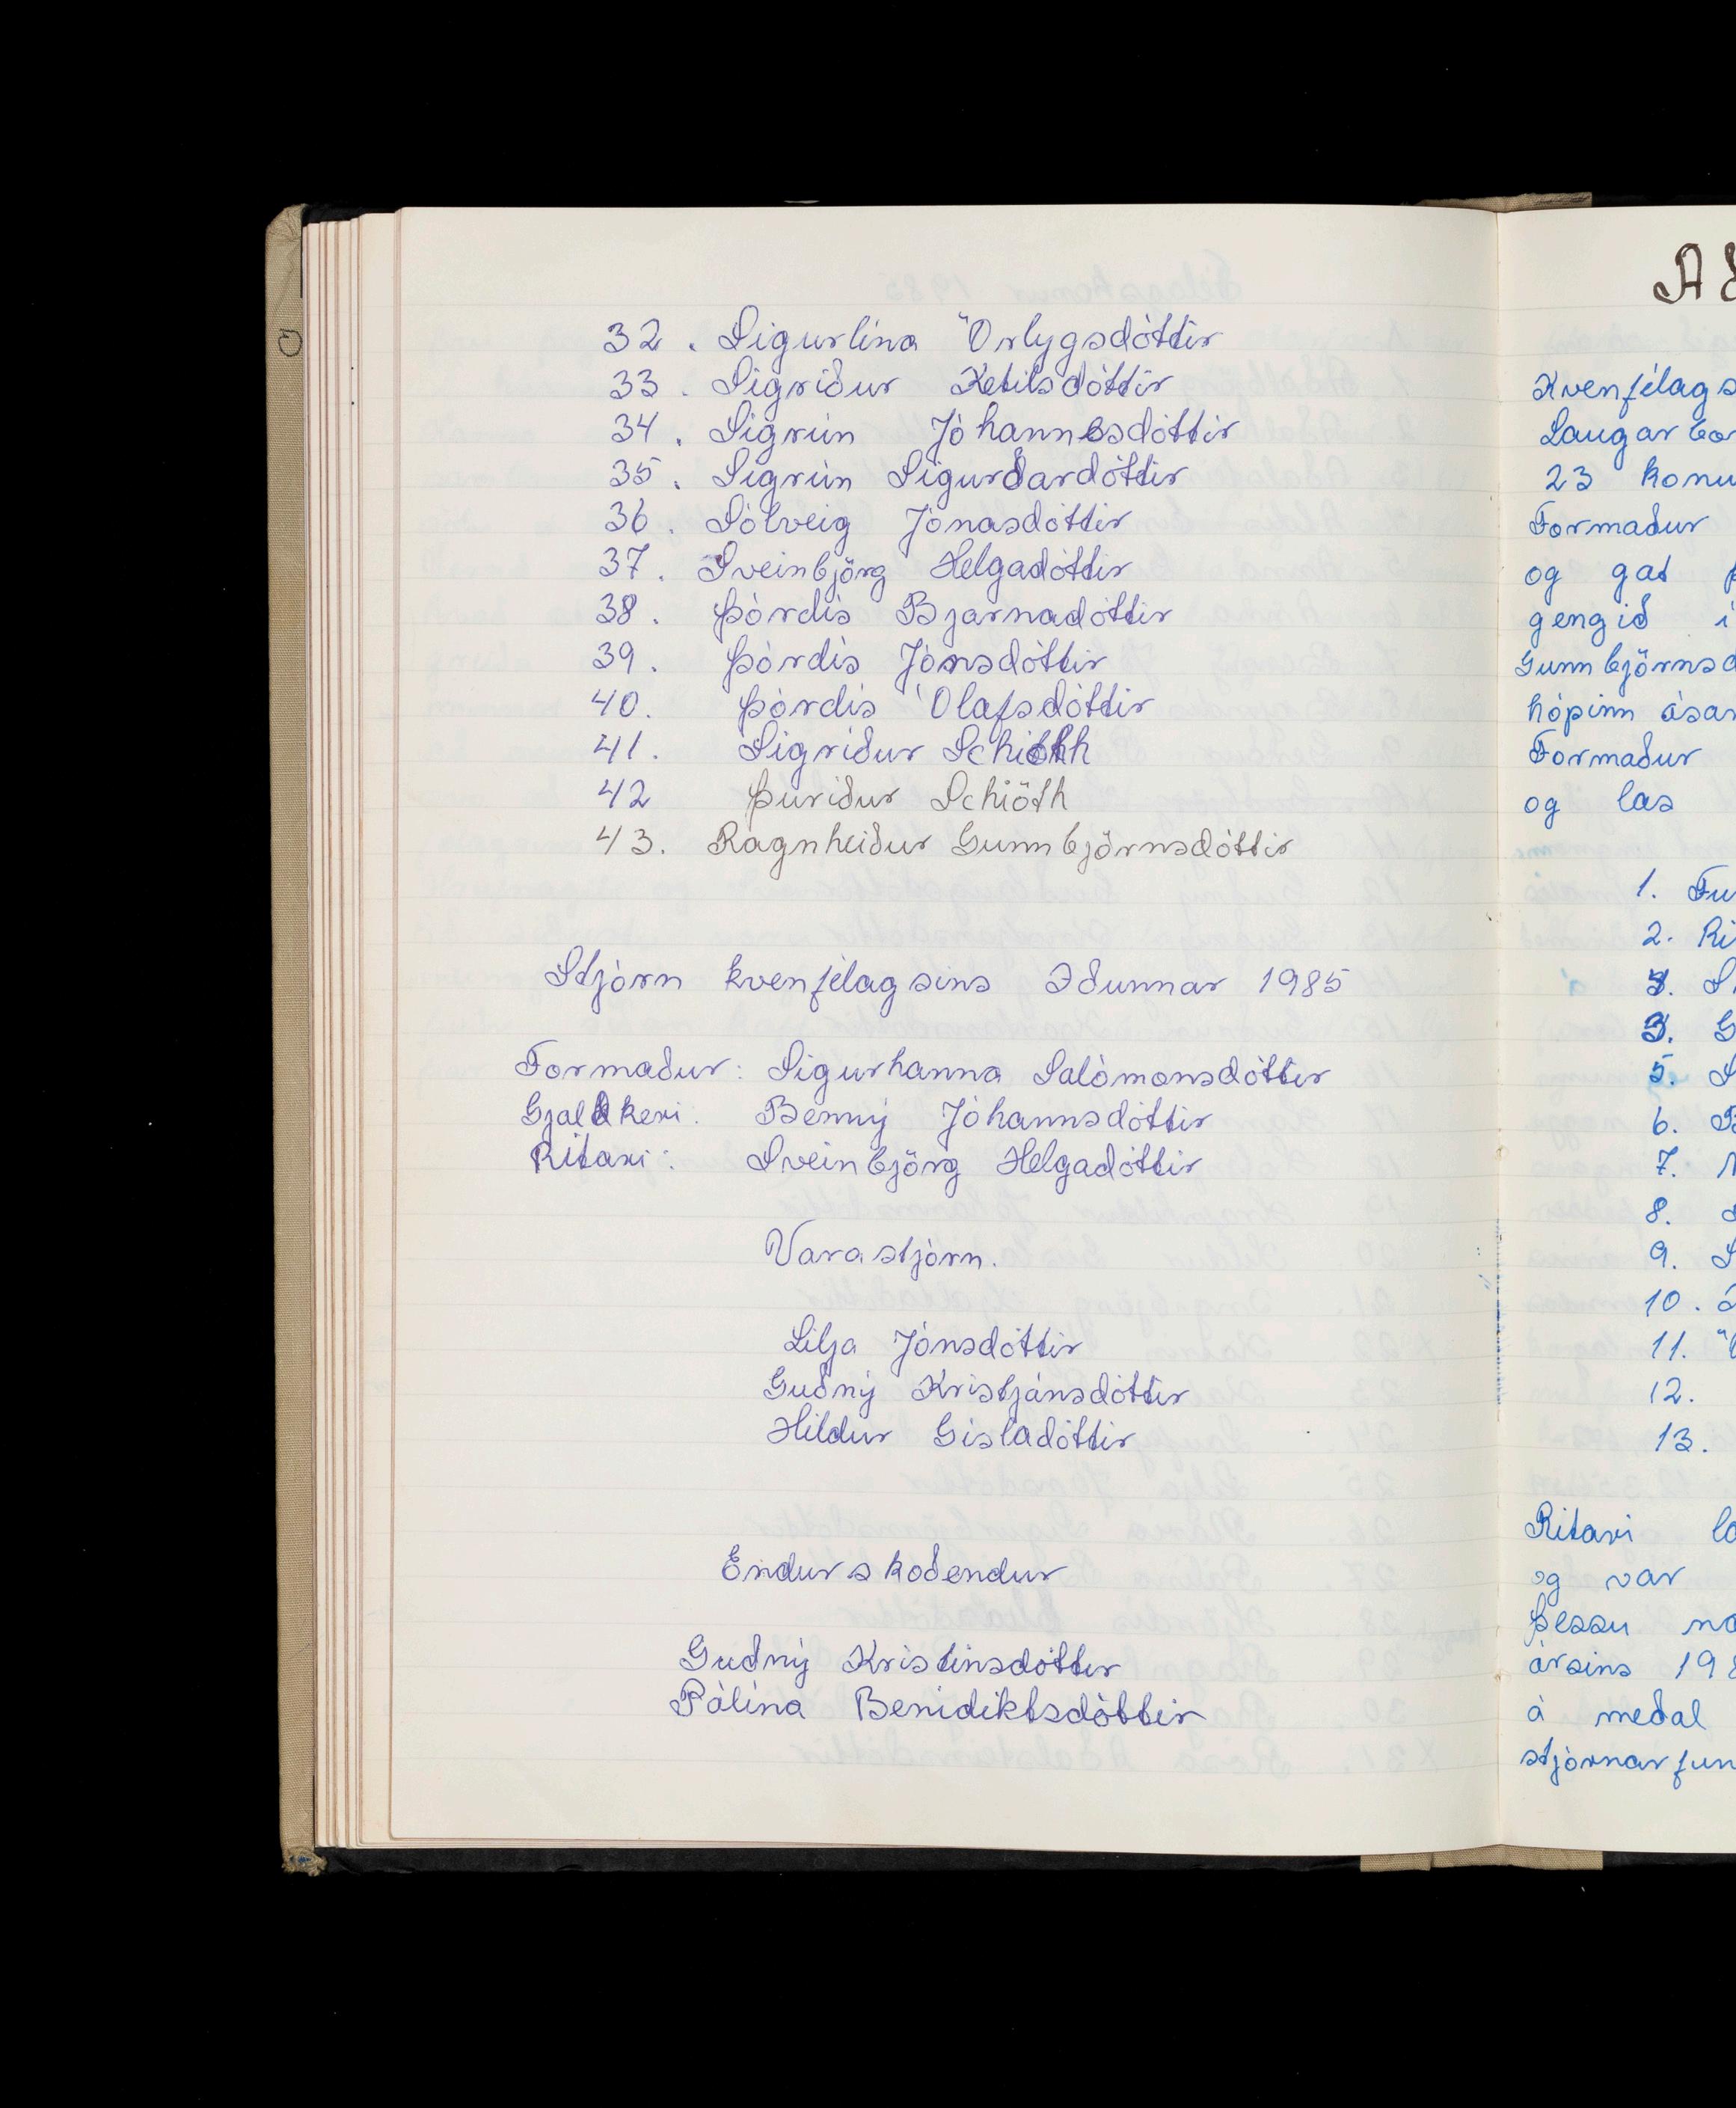 32. Sigurlína Örlygsdóttir
33. Sigríður Ketilsdóttir
34. Sigrún Jóhannesdóttir
35. Sigrún Sigurðardóttir
36. Sólveig Jónasdóttir
37. Sveinbjörg Helgadóttir
38. Þórdís Bjarnadóttir
39. Þórdís Jónsdóttir
40. Þórdís Ólafsdóttir
41. Sigríður Schiöth
42 Þuríður Schiöth
43. Ragnheiður Gunnbjörnsdóttir
Stjórn kvenfélagsins Iðunnar 1985
Formaður: Sigurhanna Salómonsdóttir
Gjaldkeri: Benný Jóhannsdóttir
Ritari: Sveinbjörg Helgadóttir
Varastjórn.
Lilja Jónsdóttir
Guðný Kristjánsdóttir
Hildur Gísladóttir
Endurskoðendur
Guðný Kristinsdóttir
Pálína Benidiktsdóttir
Að
Kvenfélags
Laugarbor
23 konu
Formaður
og gat
gengið í
Gunnbjörnsd
hópinn ásam
Formaður
og las
1. Fu
2. Ri
3.
3. G
5. S
6. B
7.
8.
9. S
10.
11.
12.
13.
Ritari la
og var
þessu
ársins 198
á meðal
stjórnarfun